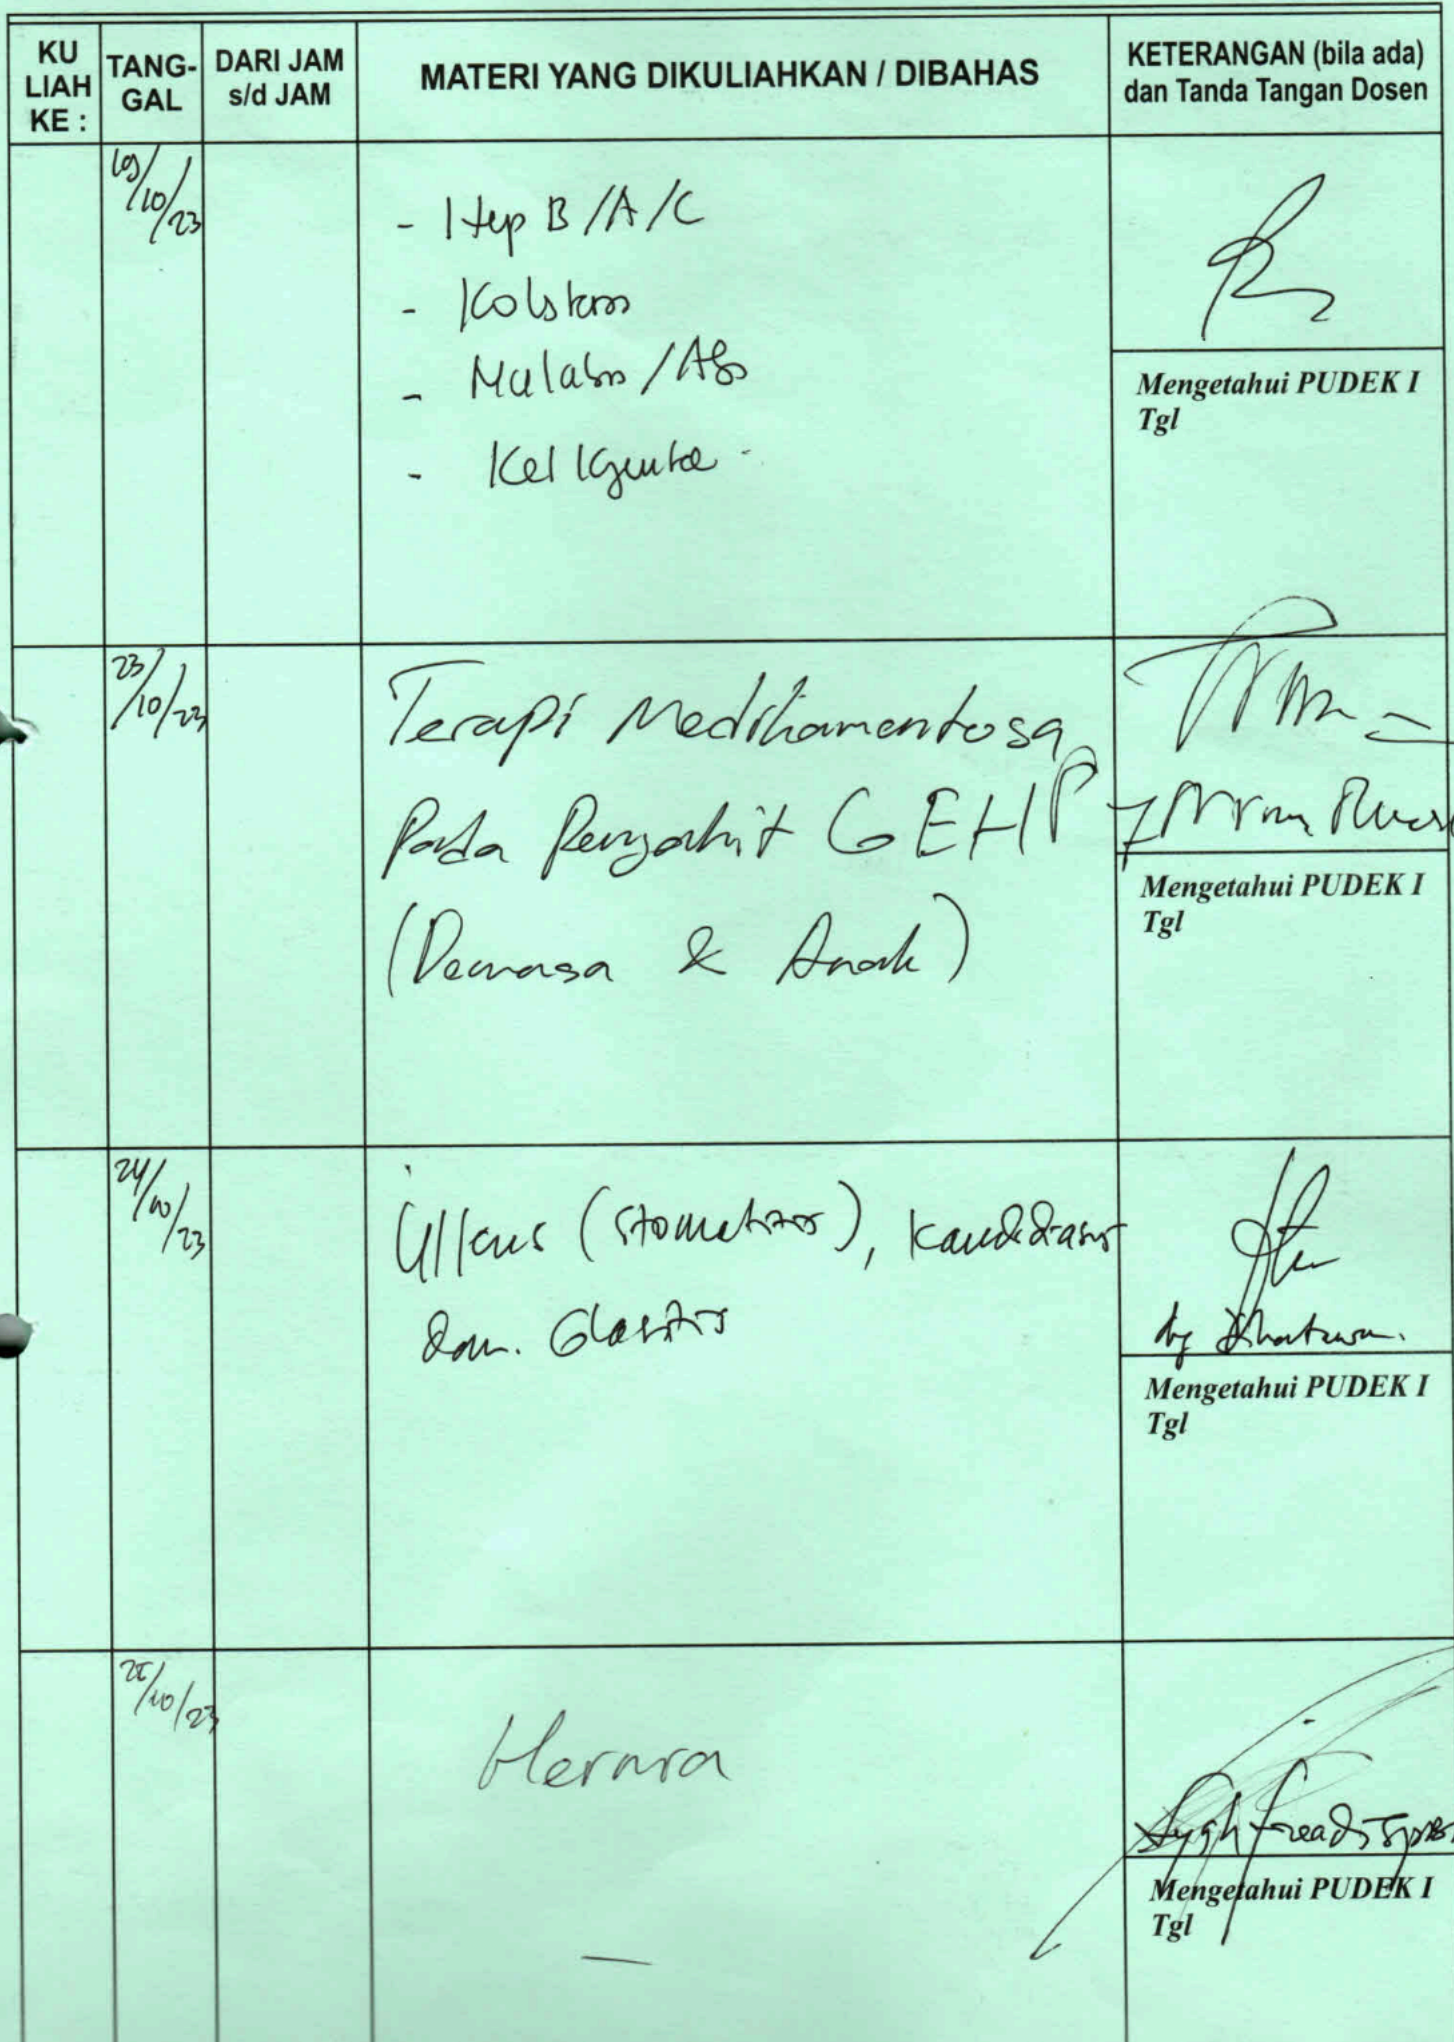 KU LIAH KE :
TANG-GAL
DARI JAM s/d JAM
MATERI YANG DIKULIAHKAN / DIBAHAS
KETERANGAN (bila ada) dan Tanda Tangan Dosen
/10/23
- Hep B/A/C
-
- /
- Kel
Mengetahui PUDEK I
Tgl
23/10/23
Terapi Medikamentosa
Pada Penyakit GEHP
(Dewasa & Anak)
Mengetahui PUDEK I
Tgl
24/10/23
Ulkus (Stomatitis), Kandidiasis
dan Glositis
Mengetahui PUDEK I
Tgl
25/10/23
Hernia
Mengetahui PUDEK I
Tgl